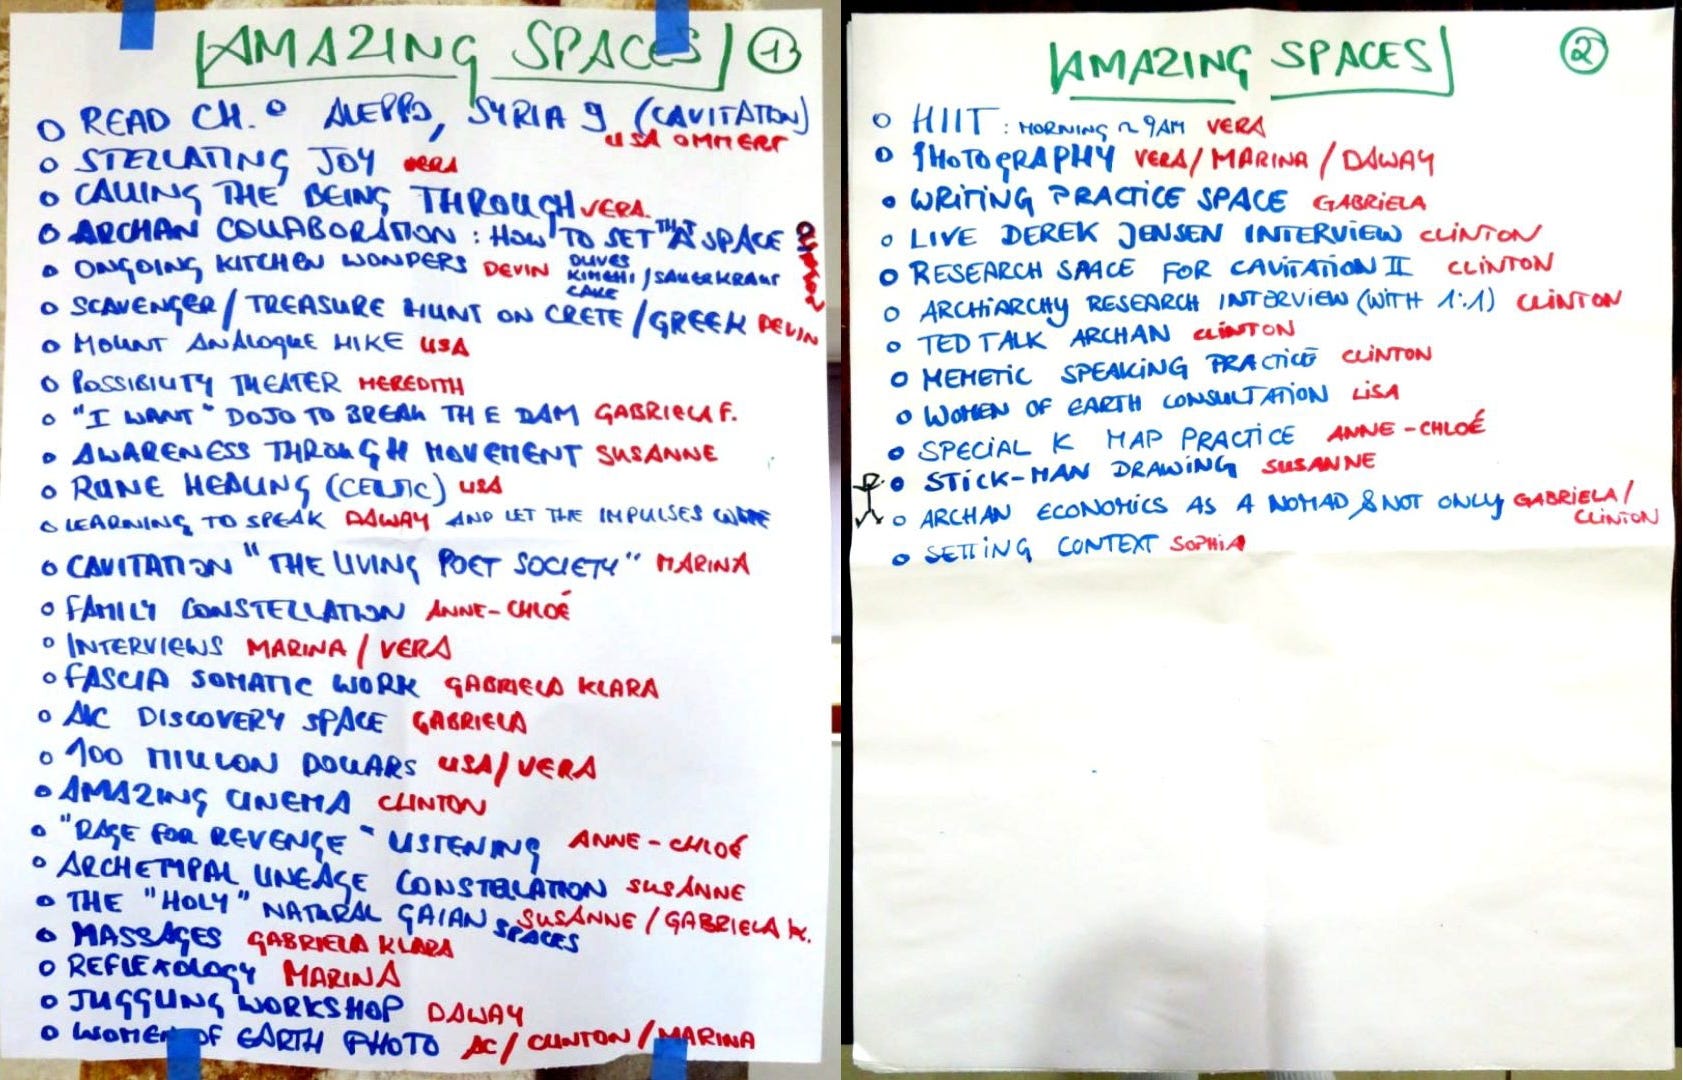 AMAZING SPACES 1
READ CH. ALEPPO, SYRIA 9 (CAVITATION)
LISA OMMERT
STELLATING JOY VERA
CALLING THE BEING THROUGH VERA
ARCHAN COLLABORATION : HOW TO SET THAT SPACE CLINTON
ONGOING KITCHEN WONDERS DEVIN OLIVES
KIMCHI / SAUERKRAUT
CAKE
SCAVENGER / TREASURE HUNT ON CRETE / GREEK DEVIN
MOUNT ANALOGUE HIKE LISA
POSSIBILITY THEATER MEREDITH
"I WANT" DOJO TO BREAK THE DAM GABRIELA F.
AWARENESS THROUGH MOVEMENT SUSANNE
RUNE HEALING (CELTIC) LISA
LEARNING TO SPEAK DAWAY AND LET THE IMPULSES COME
CAVITATION "THE LIVING POET SOCIETY" MARINA
FAMILY CONSTELLATION ANNE-CHLOÉ
INTERVIEWS MARINA / VERA
FASCIA SOMATIC WORK GABRIELA KLARA
A/C DISCOVERY SPACE GABRIELA
100 MILLION DOLLARS LISA / VERA
AMAZING CINEMA CLINTON
"RAGE FOR REVENGE" LISTENING ANNE-CHLOÉ
ARCHETYPAL LINEAGE CONSTELLATION SUSANNE
THE "HOLY" NATURAL GAIAN SPACES SUSANNE / GABRIELA K.
MASSAGES GABRIELA KLARA
REFLEXOLOGY MARINA
JUGGLING WORKSHOP DAWAY
WOMEN OF EARTH PHOTO AC / CLINTON / MARINA
AMAZING SPACES 2
HIIT : MORNING ~ 9AM VERA
PHOTOGRAPHY VERA / MARINA / DAWAY
WRITING PRACTICE SPACE GABRIELA
LIVE DEREK JENSEN INTERVIEW CLINTON
RESEARCH SPACE FOR CAVITATION II CLINTON
ARCHIARCHY RESEARCH INTERVIEW (WITH 1:1) CLINTON
TED TALK ARCHAN CLINTON
MEMETIC SPEAKING PRACTICE CLINTON
WOMEN OF EARTH CONSULTATION LISA
SPECIAL K MAP PRACTICE ANNE-CHLOÉ
STICK-MAN DRAWING SUSANNE
ARCHAN ECONOMICS AS A NOMAD & NOT ONLY GABRIELA /
CLINTON
SETTING CONTEXT SOPHIA